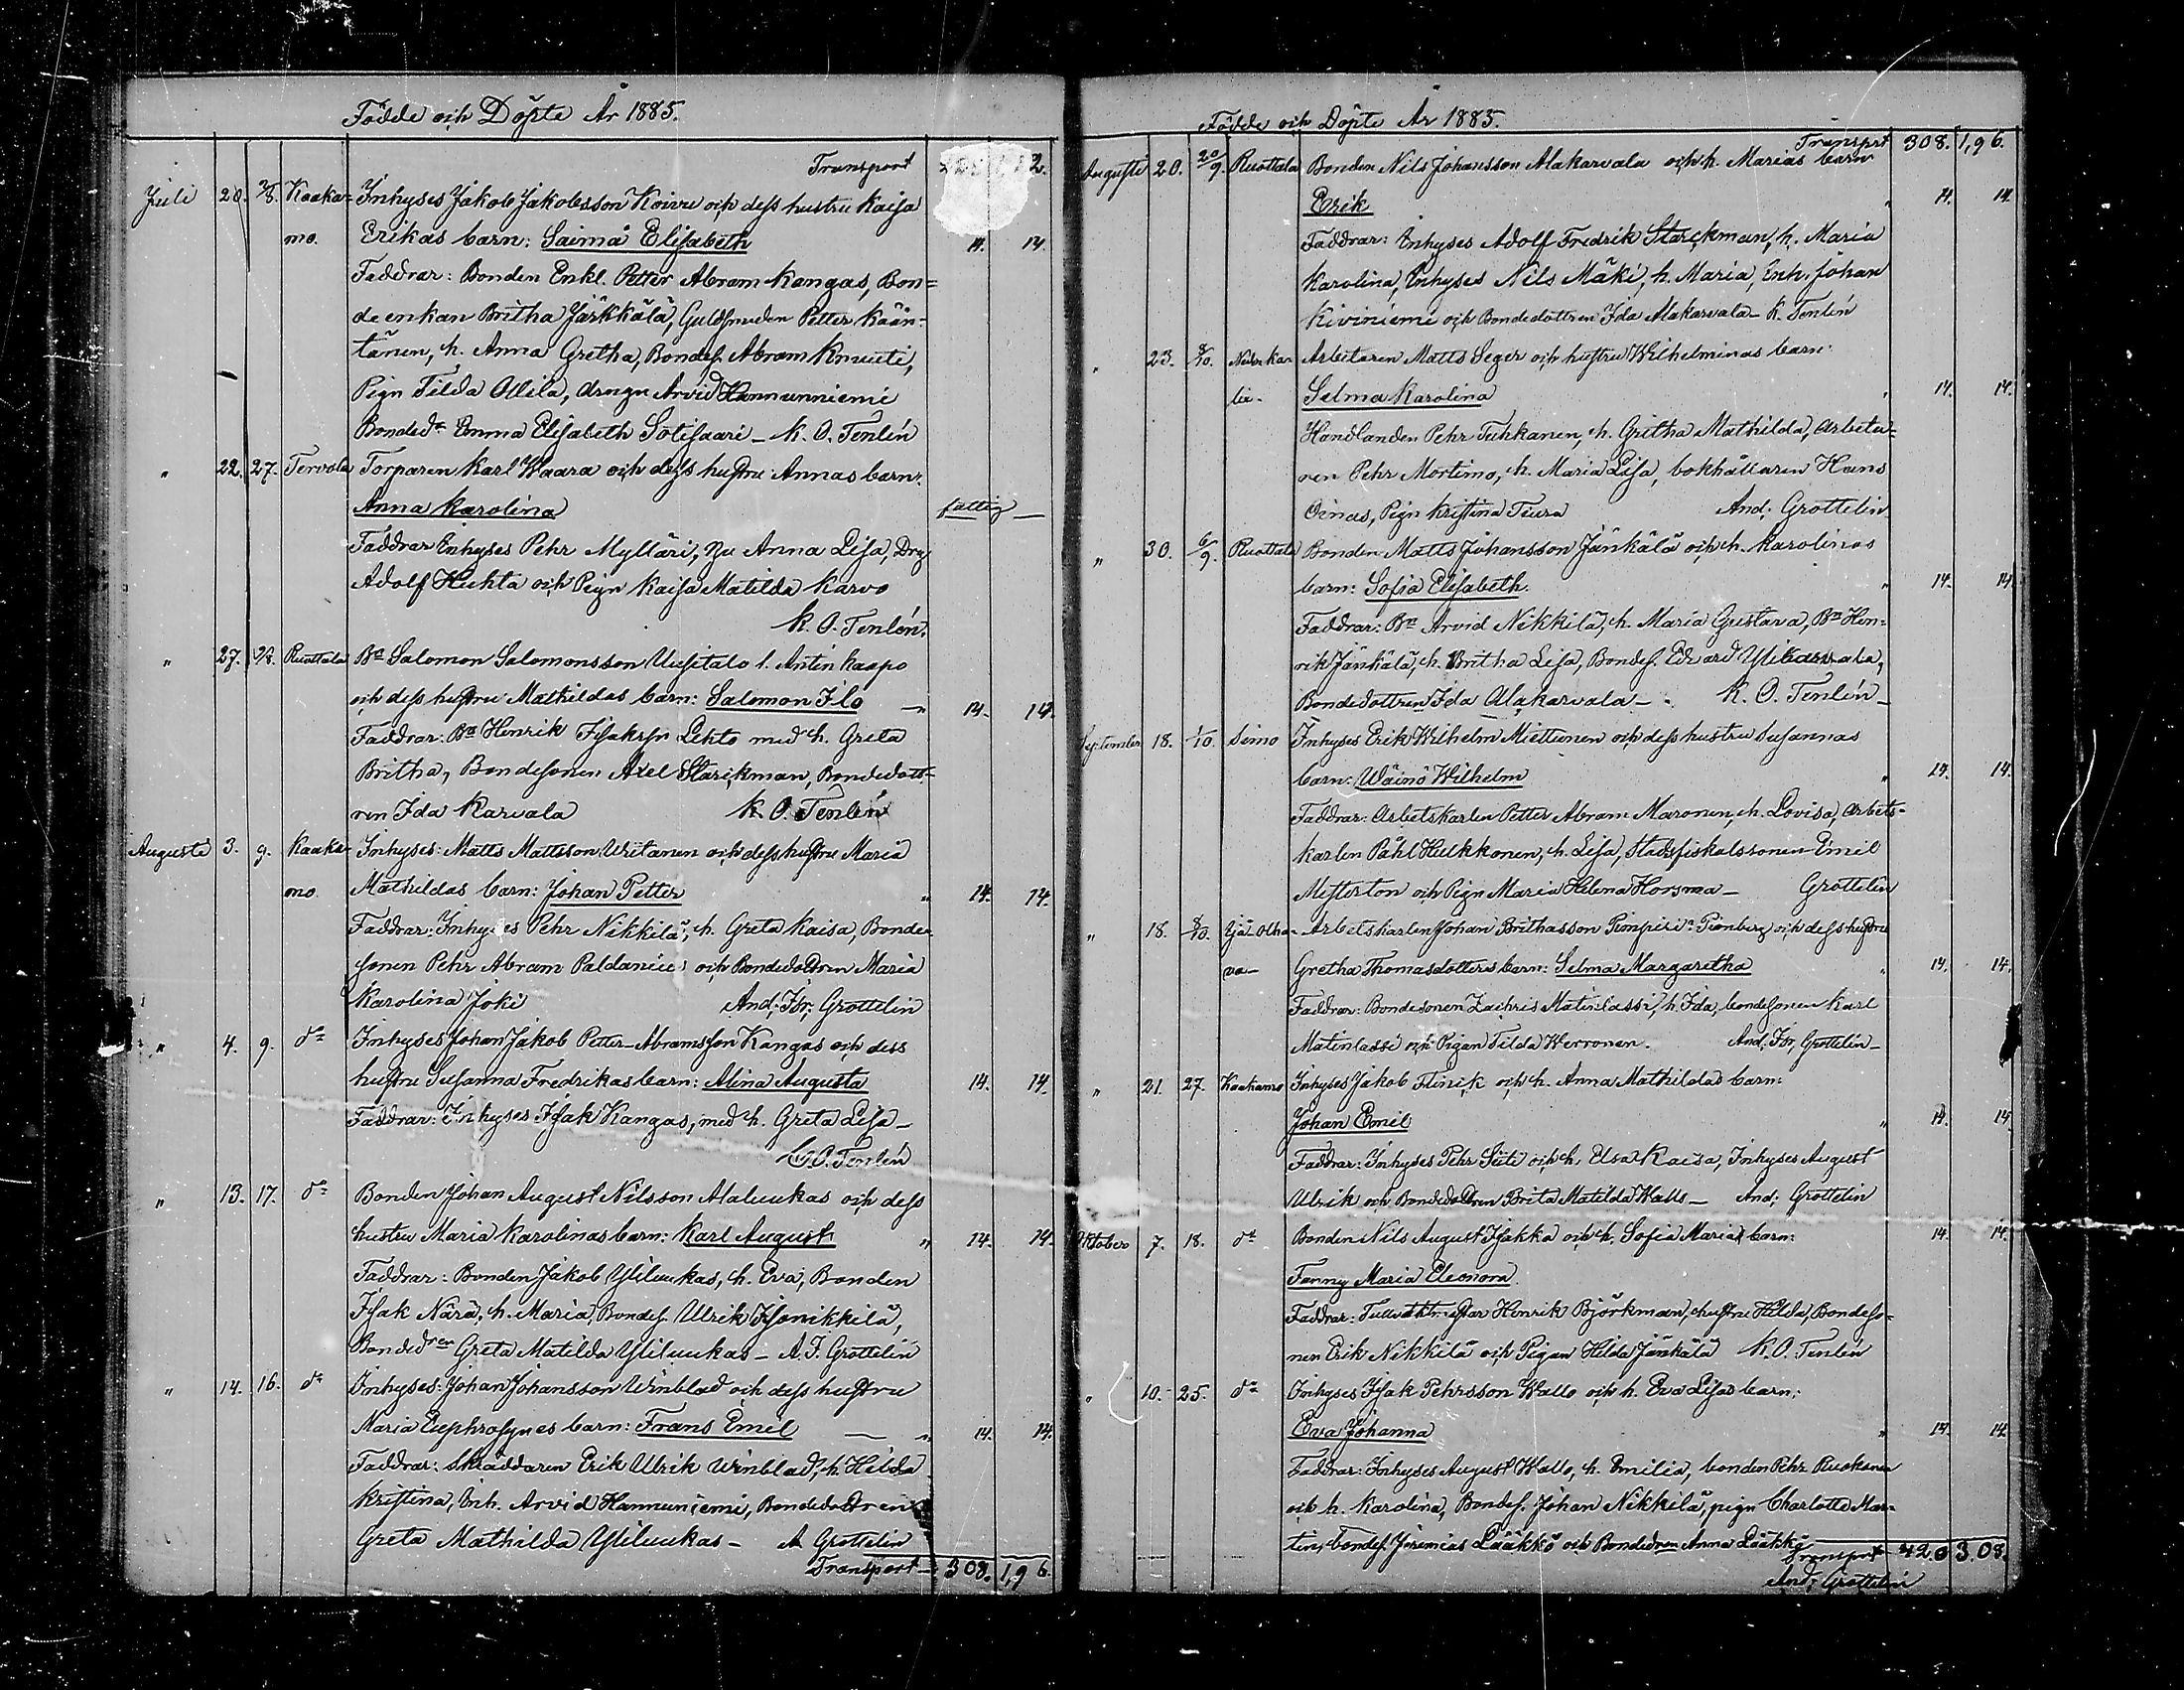 Födde och Döpte År 1885.
Transport 2.
Juli 20. 2/8. Kaaka- Inhyses Jakob Jakobsson Koivu och dess hustru Kaisa
mo. Erikas barn: Saima Elisabeth 14. 14.
Faddrar: Bonden Enkl. Petter Abram Kangas, Bon-
de enkan Britha Järkkälä, Guldsmeden Petter Kään-
tänen, h. Anna Gretha, Bondes. Abram Knuuti,
Pign Tilda Ollila, drängn Arvid Hannunniemi
Bonded:r Emma Elisabeth Sotisaari – K. O. Tenlén
" 22. 27. Tervola Torparen Karl Waara och dess hustru Annas barn:
Anna Karolina fattig —
Faddrar Inhyses Pehr Mylläri, Anna Lisa, Drg
Adolf Huhta och Pign Kaisa Matilda Karvo
K. O. Tenlén.
" 27. 9/8. Ruottala Bn Salomon Salomonsson Uusitalo l. Antin Kaapo
och dess hustru Mathildas barn: Salomon Ilo " 14. 14.
Faddrar: Bn Henrik Isaksson Lehto med h. Greta
Britha, Bondesonen Axel Starckman, Bondedott-
ren Ida Karvala K. O. Tenlén
Augusti 3. 9. Kaaka- Inhyses: Matts Mattsson Writanen och dess hustru Maria
mo. Mathildas barn: Johan Petter " 14. 14.
Faddrar: Inhyses Pehr Nikkilä, h. Greta Kaisa, Bonde-
sonen Pehr Abram Paldanius och Bondedottren Maria
Karolina Joki And: Fr: Grottelin
" 4. 9. d:o Inhyses Johan Jakob Petter-Abramsson Kangas och dess
hustru Susanna Fredrikas barn: Alina Augusta 14. 14.
Faddrar: Inhyses Isak Kangas, med h. Greta Lisa –
K. O. Tenlén
" 13. 17. d:o Bonden Johan August Nilsson Alaluukas och dess
hustru Maria Karolinas barn: Karl August " 14. 14.
Faddrar: Bonden Jakob Yliluukas, h. Eva, Bonden
Isak Närä, h. Maria, Bondes. Ulrik Isonikkilä,
Bonded:ren Greta Matilda Yliluukas – A. F. Grottelin
" 14. 16. d:o Inhyses: Johan Johansson Winblad och dess hustru
Maria Euphrosynes barn: Frans Emil — " 14. 14.
Faddrar: Skräddaren Erik Ulrik Winblad, h. Hilda
Kristina, Inh. Arvid Hannuniemi, Bondedottren
Greta Mathilda Yliluukas – A Grottelin
Transport – 308. 1,96.
Födde och Döpte År 1885.
Transprt 308. 1,96.
Augusti 20. 20/9. Ruottala Bonden Nils Johansson Alakarvala och h. Marias barn
Erik " 14. 14.
Faddrar: Inhyses Adolf Fredrik Starckman, h. Maria
Karolina, Inhyses Nils Mäki, h. Maria, Inh. Johan
Kiviniemi och Bondedottren Ida Alakarvala – K. Tenlén
" 23. 8/10. Neder ka- Arbetaren Matts Seger och hustru Wilhelminas barn:
lix– Selma Karolina " 14. 14.
Handlanden Pehr Tuhkanen, h. Gretha Mathilda, Arbeta-
ren Pehr Mortimo, h. Maria Lisa, bokhållaren Hans
Oinas, Pign Kristina Tiura And: Grottelin
" 30. 6/9. Ruottala Bonden Matts Johansson Jänkälä och h. Karolinas
barn: Sofia Elisabeth. " 14. 14
Faddrar: Bn Arvid Nikkilä, h. Maria Gustava, Bn Hen-
rik Jänkälä, h. Britha Lisa, Bondes. Edvard Ylikarvala,
Bondedottren Ida Alakarvala – K. O. Tenlén –
September 18. 1/10. Simo Inhyses Erik Wilhelm Miettunen och dess hustru Susannas
barn: Wäinö Wilhelm " 14. 14.
Faddrar: Arbetskarlen Petter Abram Maronen, h. Lovisa, Arbets-
karlen Påhl Hulkkonen, h. Lisa, Stadsfiskalssonen Emil
Mesterton och Pign Maria Helena Horsma – Grottelin
" 18. 8/10. Ijå-Olha- Arbetskarlen Johan Brithasson Pimperi Pienberg och dess hustru
va– Gretha Thomasdotters barn: Selma Margaretha " 14. 14.
Faddrar: Bondesonen Zachris Matinlassi, h. Ida, bondesonen Karl
Matinlassi och Pigan Tilda Werronen. And: Fr, Grottelin –
" 21. 27. Kaakamo Inhyses Jakob Flinik och h. Anna Mathildas barn:
Johan Emil " 14. 14
Faddrar: Inhyses Pehr Suti och h. Elsa Kaisa, Inhyses August
Ulrik och Bondedottren Brita Matilda Walls – And: Grottelin
Oktober 7. 18. d:o Bonden Nils August Isakka och h. Sofia Marias barn: 14. 14.
Fanny Maria Eleonora.
Faddrar: Tullvaktmästar Henrik Björkman, hustru Hilda, Bondeso-
nen Erik Nikkilä och Pigan Hilda Jänkälä K. O. Tenlén
" 10. 25. d:o Inhyses Isak Pehrsson Wallo och h. Eva Lisas barn:
Eva Johanna " 14. 14
Faddrar: Inhyses August Wallo, h. Emilia, bonden Pehr Ruokanen
och h. Karolina, Bondes. Johan Nikkilä, pign Charlotta Mar-
tin, bondes. Jeremias Lääkkö och Bondedren Anna Lääkkö
Transprt 420 3,08.
And: Grottelin